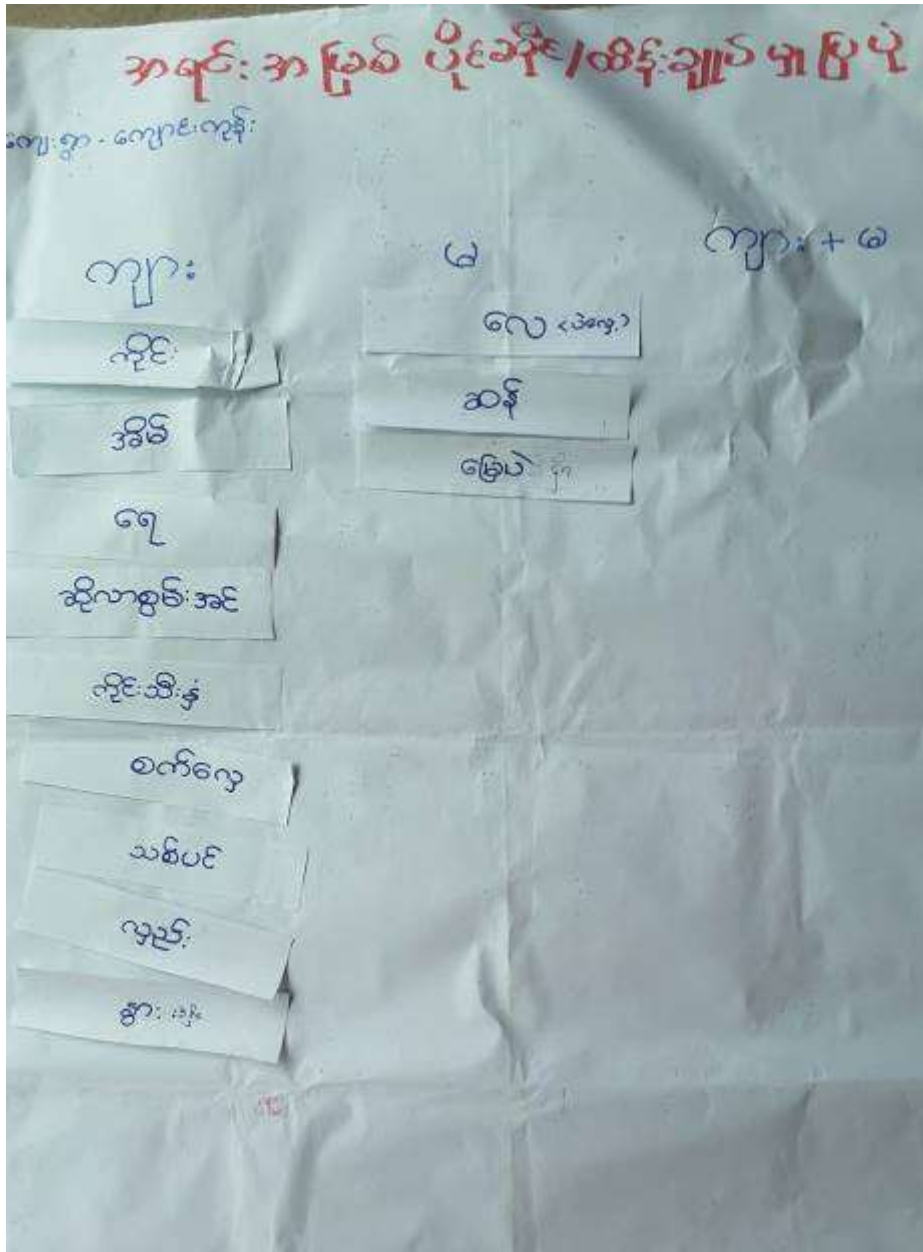 အရင်းအမြစ် ပိုင်ဆိုင်/ထိန်းချုပ် မှု ပြ ပုံ
ကျေးရွာ - ကျောင်းကုန်း
ကျား
မ
ကျား + မ
ကိုင်း
အိမ်
ရေ
ဆိုလာစွမ်းအင်
ကိုင်းသီးနှံ
စက်လှေ
သစ်ပင်
လှည်း
နွား
လှေ
ဆန်
မြေပဲ